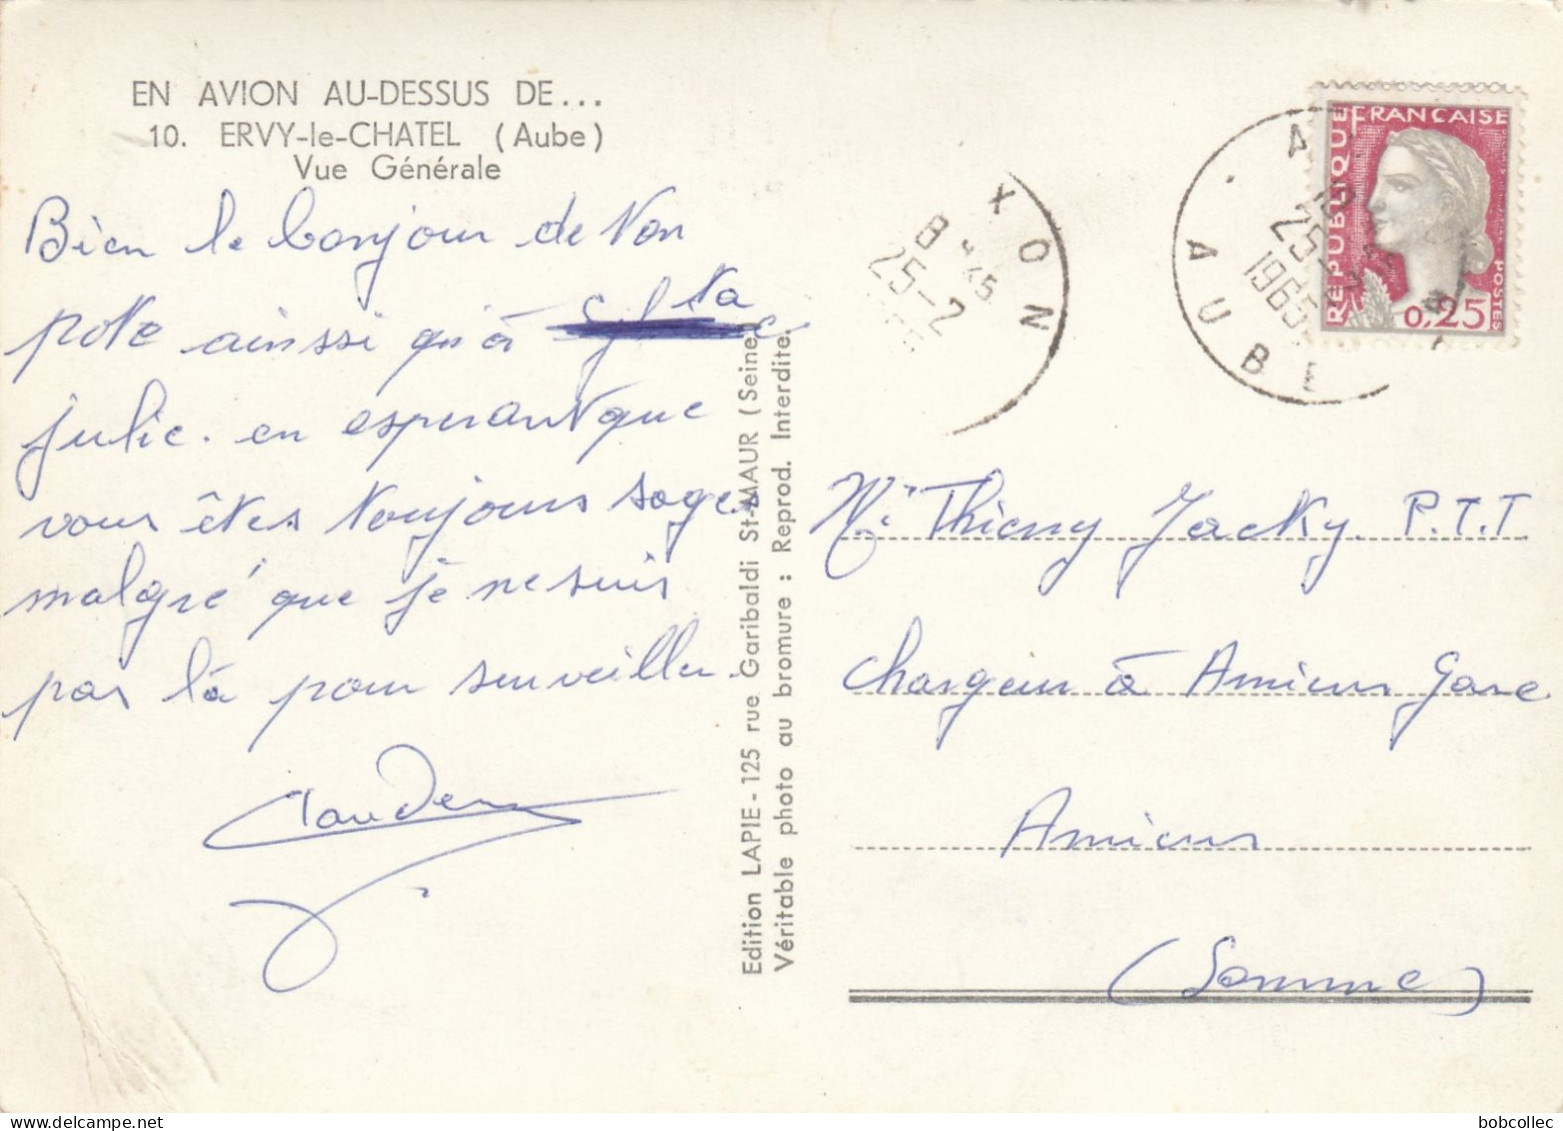 EN AVION AU-DESSUS DE...
10. ERVY-le-CHATEL (Aube)
Vue Générale
Bien le bonjour de ton
pote ainsi qu'à ta
julie. en esperant que
vous êtes toujours sages
malgré que je ne suis
pas là pour surveiller.
Edition LAPIE - 125 rue Garibaldi St-MAUR (Seine)
Véritable photo au bromure : Reprod. Interdite.
XON
8 45
25-2
A
AUBE
25-2
1965
REPUBLIQUE FRANCAISE
POSTES
0,25
Mr Thierry Jacky. P.T.T
Chargeur à Amiens Gare
Amiens
(Somme)
bobcollec